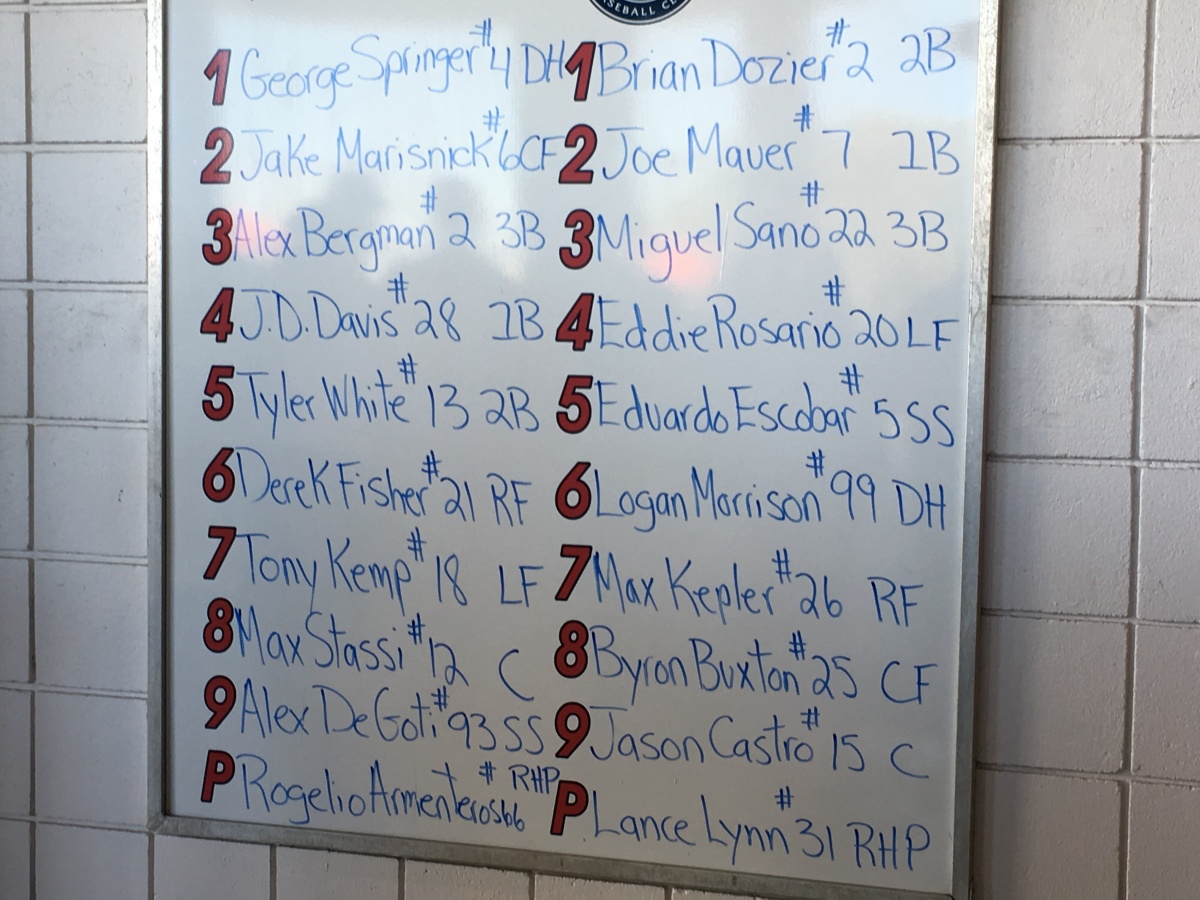 SEBALL CL
1 George Springer #4 DH
2 Jake Marisnick #6 CF
3 Alex Bergman #2 3B
4 J.D. Davis #28 1B
5 Tyler White #13 2B
6 Derek Fisher #21 RF
7 Tony Kemp #18 LF
8 Max Stassi #12 C
9 Alex De Goti #93 SS
P Rogelio Armenteros #66 RHP
1 Brian Dozier #2 2B
2 Joe Mauer #7 1B
3 Miguel Sano #22 3B
4 Eddie Rosario #20 LF
5 Eduardo Escobar #5 SS
6 Logan Morrison #99 DH
7 Max Kepler #26 RF
8 Byron Buxton #25 CF
9 Jason Castro #15 C
P Lance Lynn #31 RHP